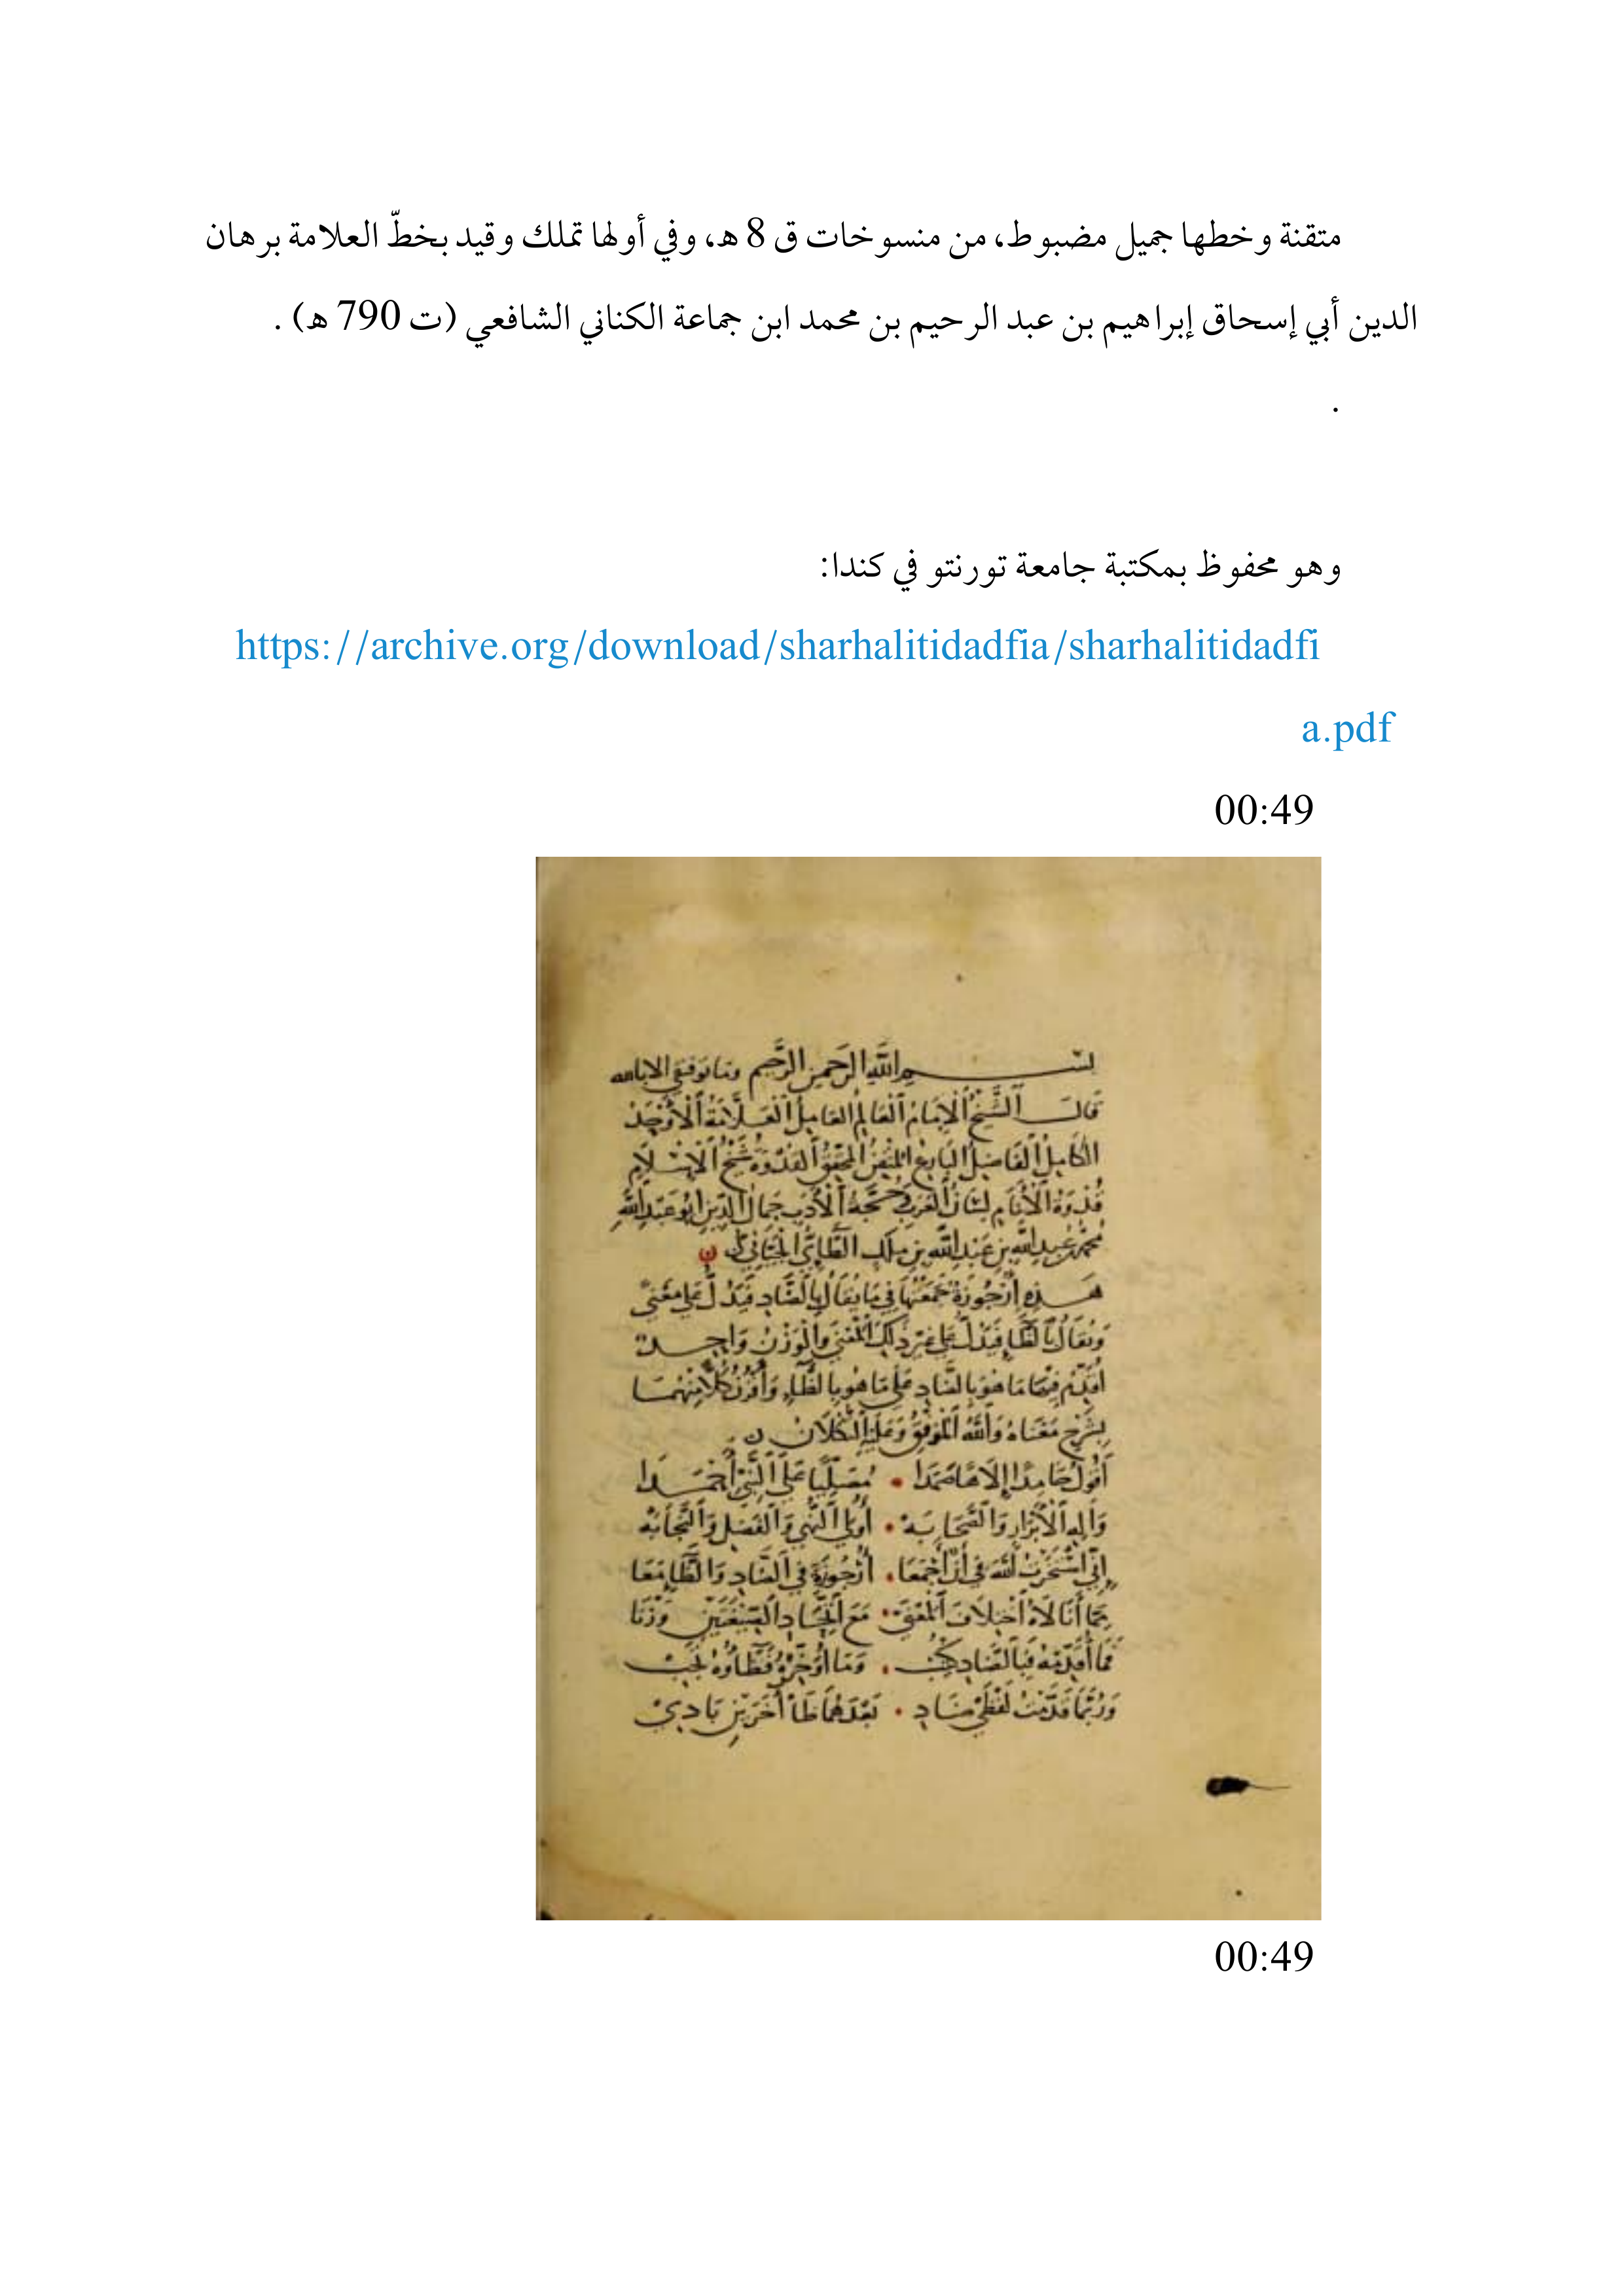 متقنة وخطها جميل مضبوط، من منسوخات ق 8 هـ، وفي أولها تملك وقيد بخطّ العلامة برهان
الدين أبي إسحاق إبراهيم بن عبد الرحيم بن محمد ابن جماعة الكناني الشافعي (ت 790 هـ) .
.
وهو محفوظ بمكتبة جامعة تورنتو في كندا:
https://archive.org/download/sharhalitidadfia/sharhalitidadfi
a.pdf
00:49
بسم الله الرحمن الرحيم وما توفيقي الا بالله
قال الشَّيْخُ الْإِمَامُ الْعَالِمُ العَامِلُ الْعَلَّامَةُ الْأَوْحَدُ
الكَامِلُ الْفَاضِلُ البَارِعُ المُتْقِنُ المُحَقِّقُ القُدْوَةُ شَيْخُ الْإِسْلَامِ
قُدْوَةُ الْأَنَامِ لِسَانُ الْعَرَبِ حُجَّةُ الْأَدَبِ جَمَالُ الدِّينِ أَبُو عَبْدِ اللَّهِ
مُحَمَّدُ بن عَبْدِ اللَّهِ بنِ مَلِكِ الطَّائِيُّ الجَيَّانِيُّ
هَذِهِ أُرْجُوزَةٌ جَمَعْتُهَا فِي مَا يُقَالُ بِالضَّادِ فَيَدُلُّ عَلَى مَعْنًى
وَيُقَالُ بِالظَّاءِ فَيَدُلُّ عَلَى غَيْرِ ذَلِكَ الْمَعْنَى وَالْوَزْنُ وَاحِدٌ
أُقَدِّمُ فِيهَا مَا هُوَ بِالضَّادِ عَلَى مَا هُوَ بِالظَّاءِ وَأَقْرُنُ كُلًّا مِنْهُمَا
بِشَرْحِ مَعْنَاهُ وَاللَّهُ الْمُوَفِّقُ وَعَلَيْهِ التُّكْلَانُ
أَقُولُ حَامِدًا إِلَاهًا صَمَدَا . مُصَلِّيًا عَلَى النَّبِيِّ أَحْمَدَا
وَآلِهِ الْأَبْرَارِ وَالصَّحَابَهْ . أُولِي النُّهَى وَالْفَضْلِ وَالنَّجَابَهْ
إِنِّي اسْتَخَرْتُ اللَّهَ فِي أَنْ أَجْمَعَا . أُرْجُوزَةً فِي الضَّادِ وَالظَّا مَعَا
بِمَا أَنَالَاهُ اخْتِلَافَ الْمَعْنَى . مَعَ اتِّحَادِ الصِّيغَتَيْنِ وَزْنَا
فَمَا أُقَدِّمْهُ فَبِالضَّادِ كُتِبْ . وَمَا أُؤَخِّرْهُ فَظَاؤُهُ تَجِبْ
وَرُبَّمَا قَدَّمْتُ لَفْظَيْ ضَادِ . بَعْدَهُمَا ظَا أُخْرَيَيْنِ بَادِي
00:49